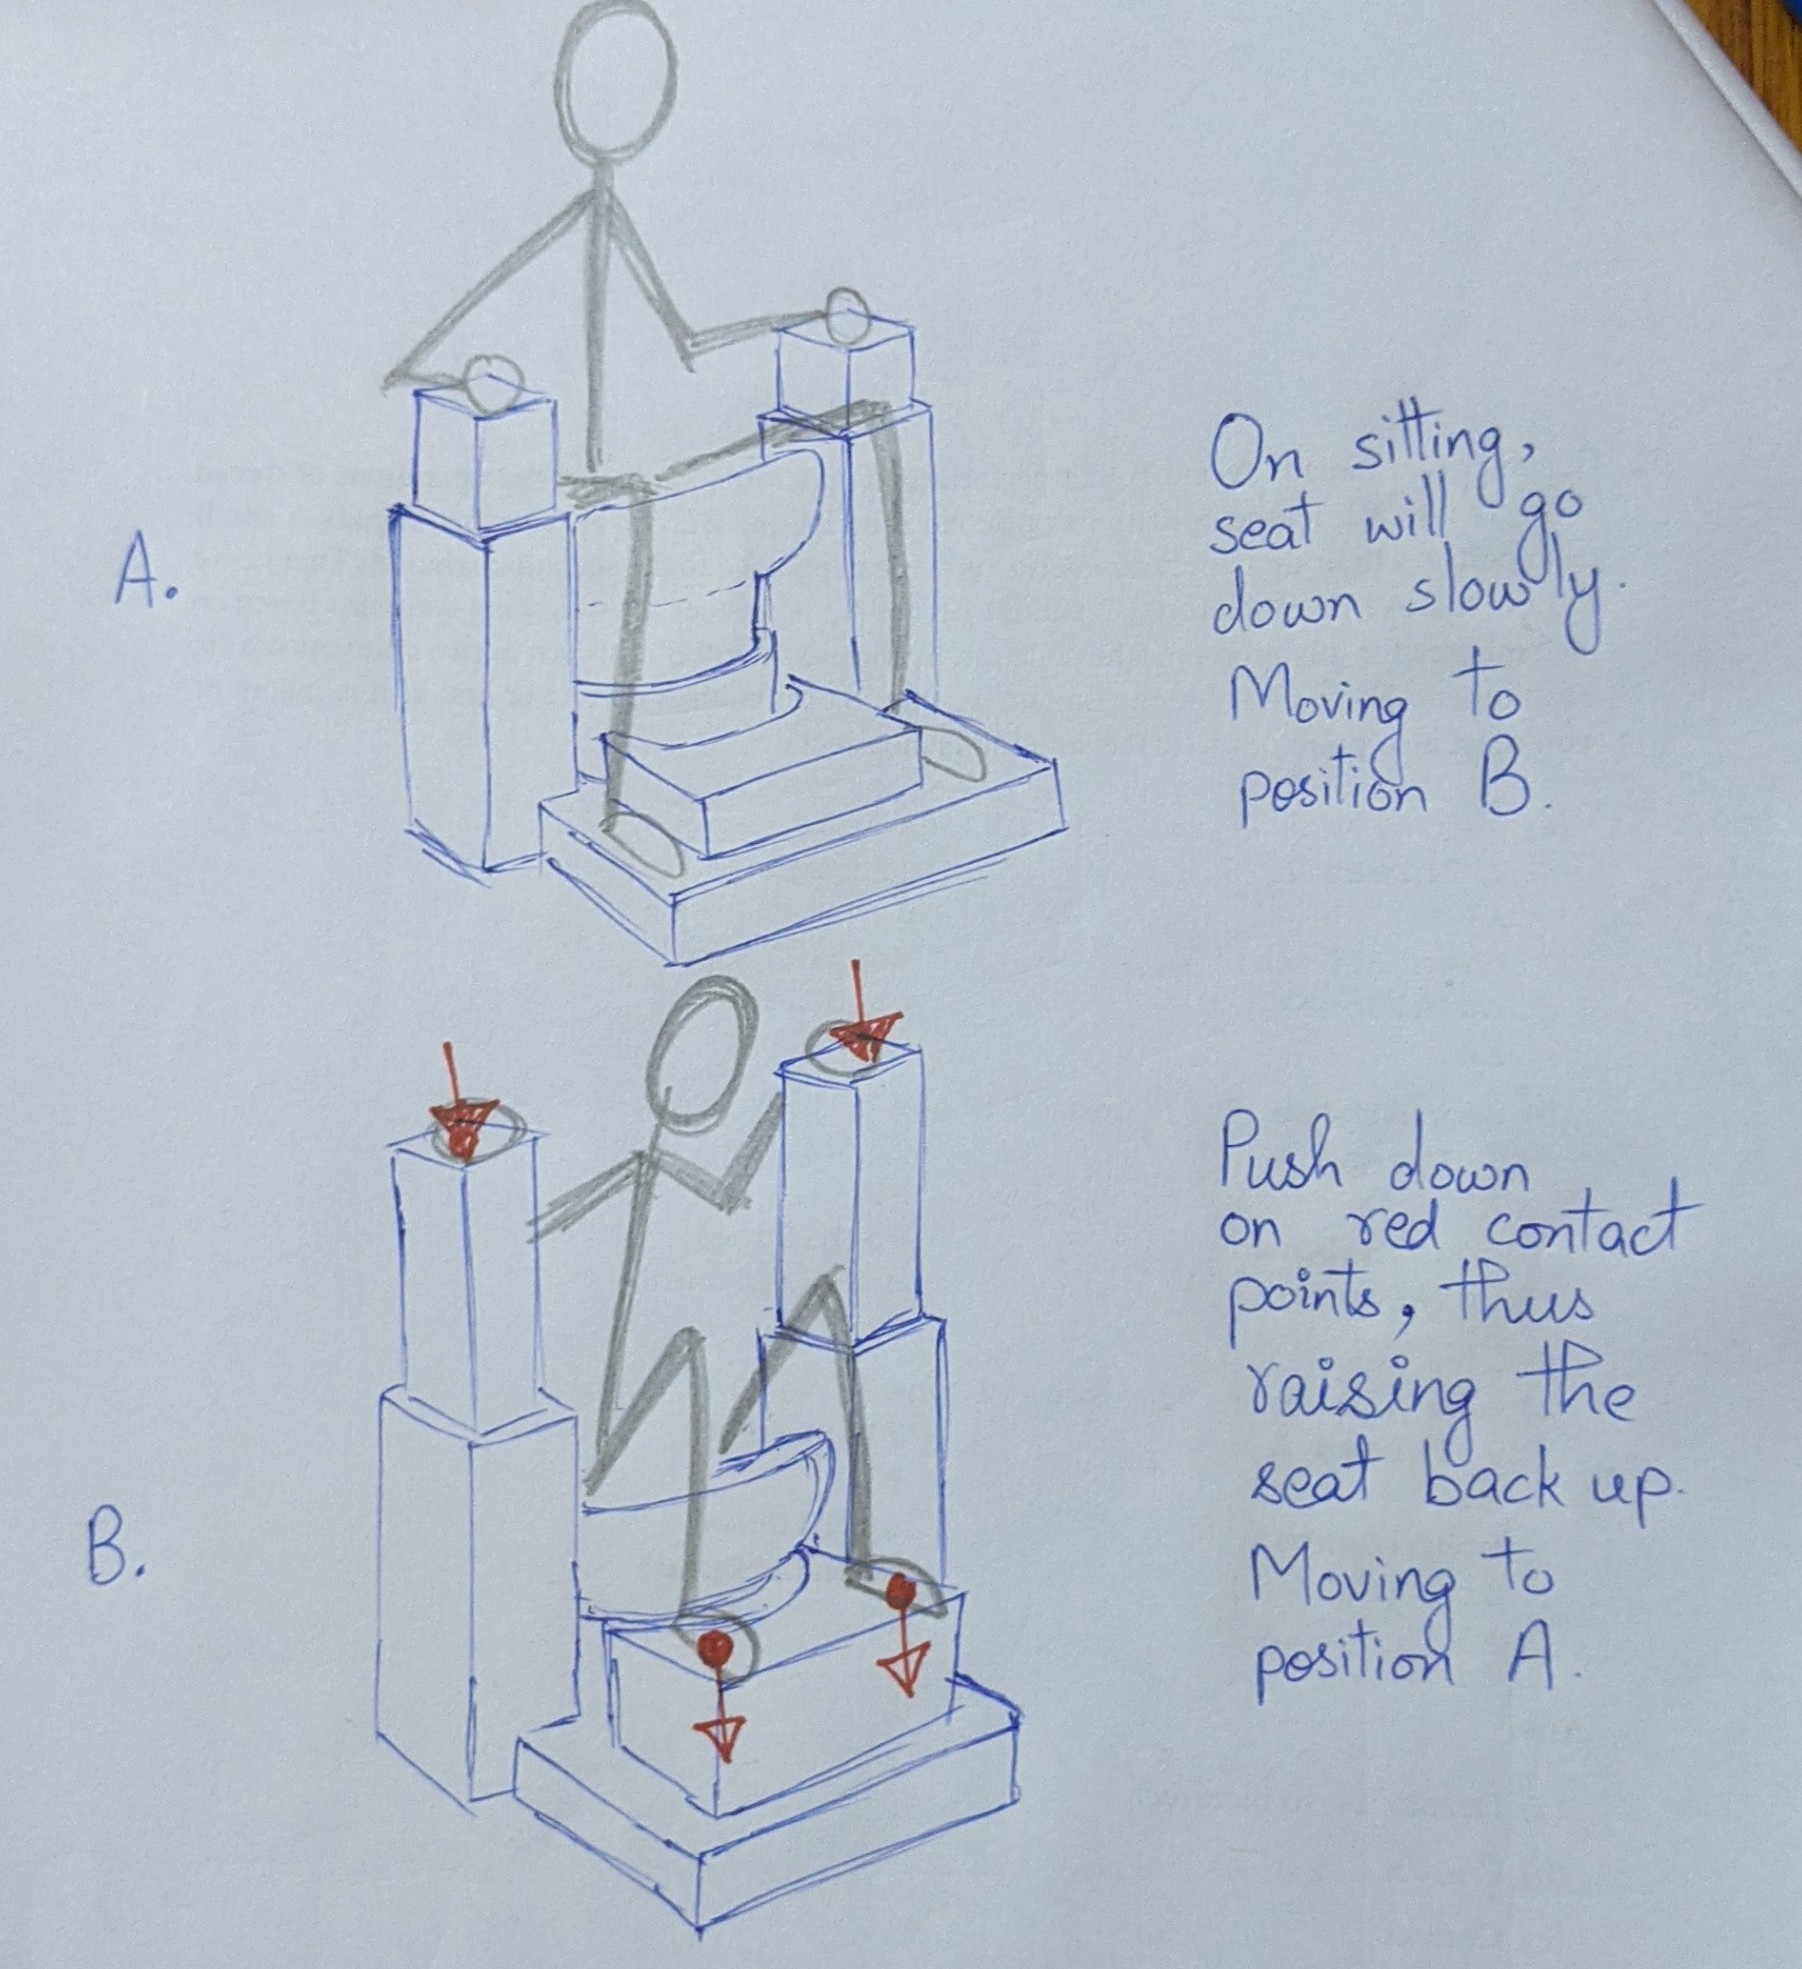 A.
On sitting,
seat will go
down slowly.
Moving to
position B.
B.
Push down
on red contact
points, thus
raising the
seat back up.
Moving to
position A.